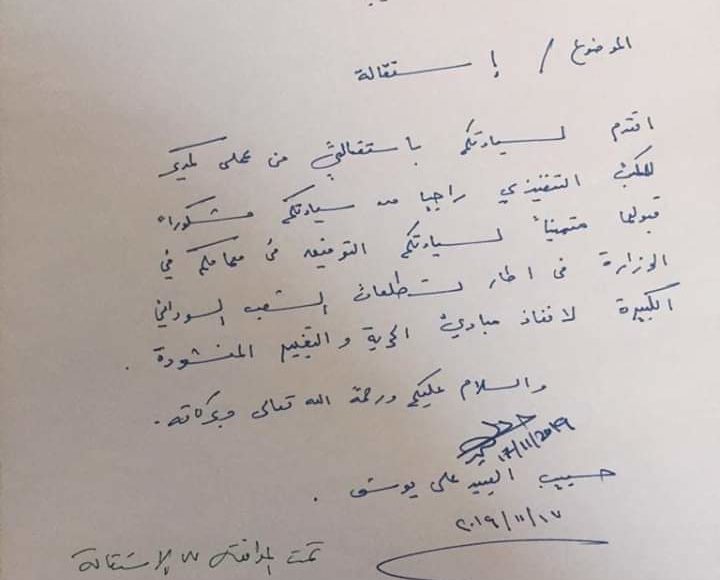 الموضوع / إستقالة
اتقدم لسيادتكم بأستقالتي من عملى كمدير
للمكتب التنفيذي راجيا من سيادتكم مشكوراً
قبولها متمنياً لسيادتكم التوفيق فى مهامكم في
الوزارة فى اطار تطلعات الشعب السوداني
الكبيرة لانفاذ مبادئ الحرية و التغيير المنشودة .
والسلام عليكم ورحمة الله تعالى وبركاته .
17/11/2019
حسيب السيد على يوسف .
٢٠١٩/١١/١٧
تمت الموافقة على الإستقالة